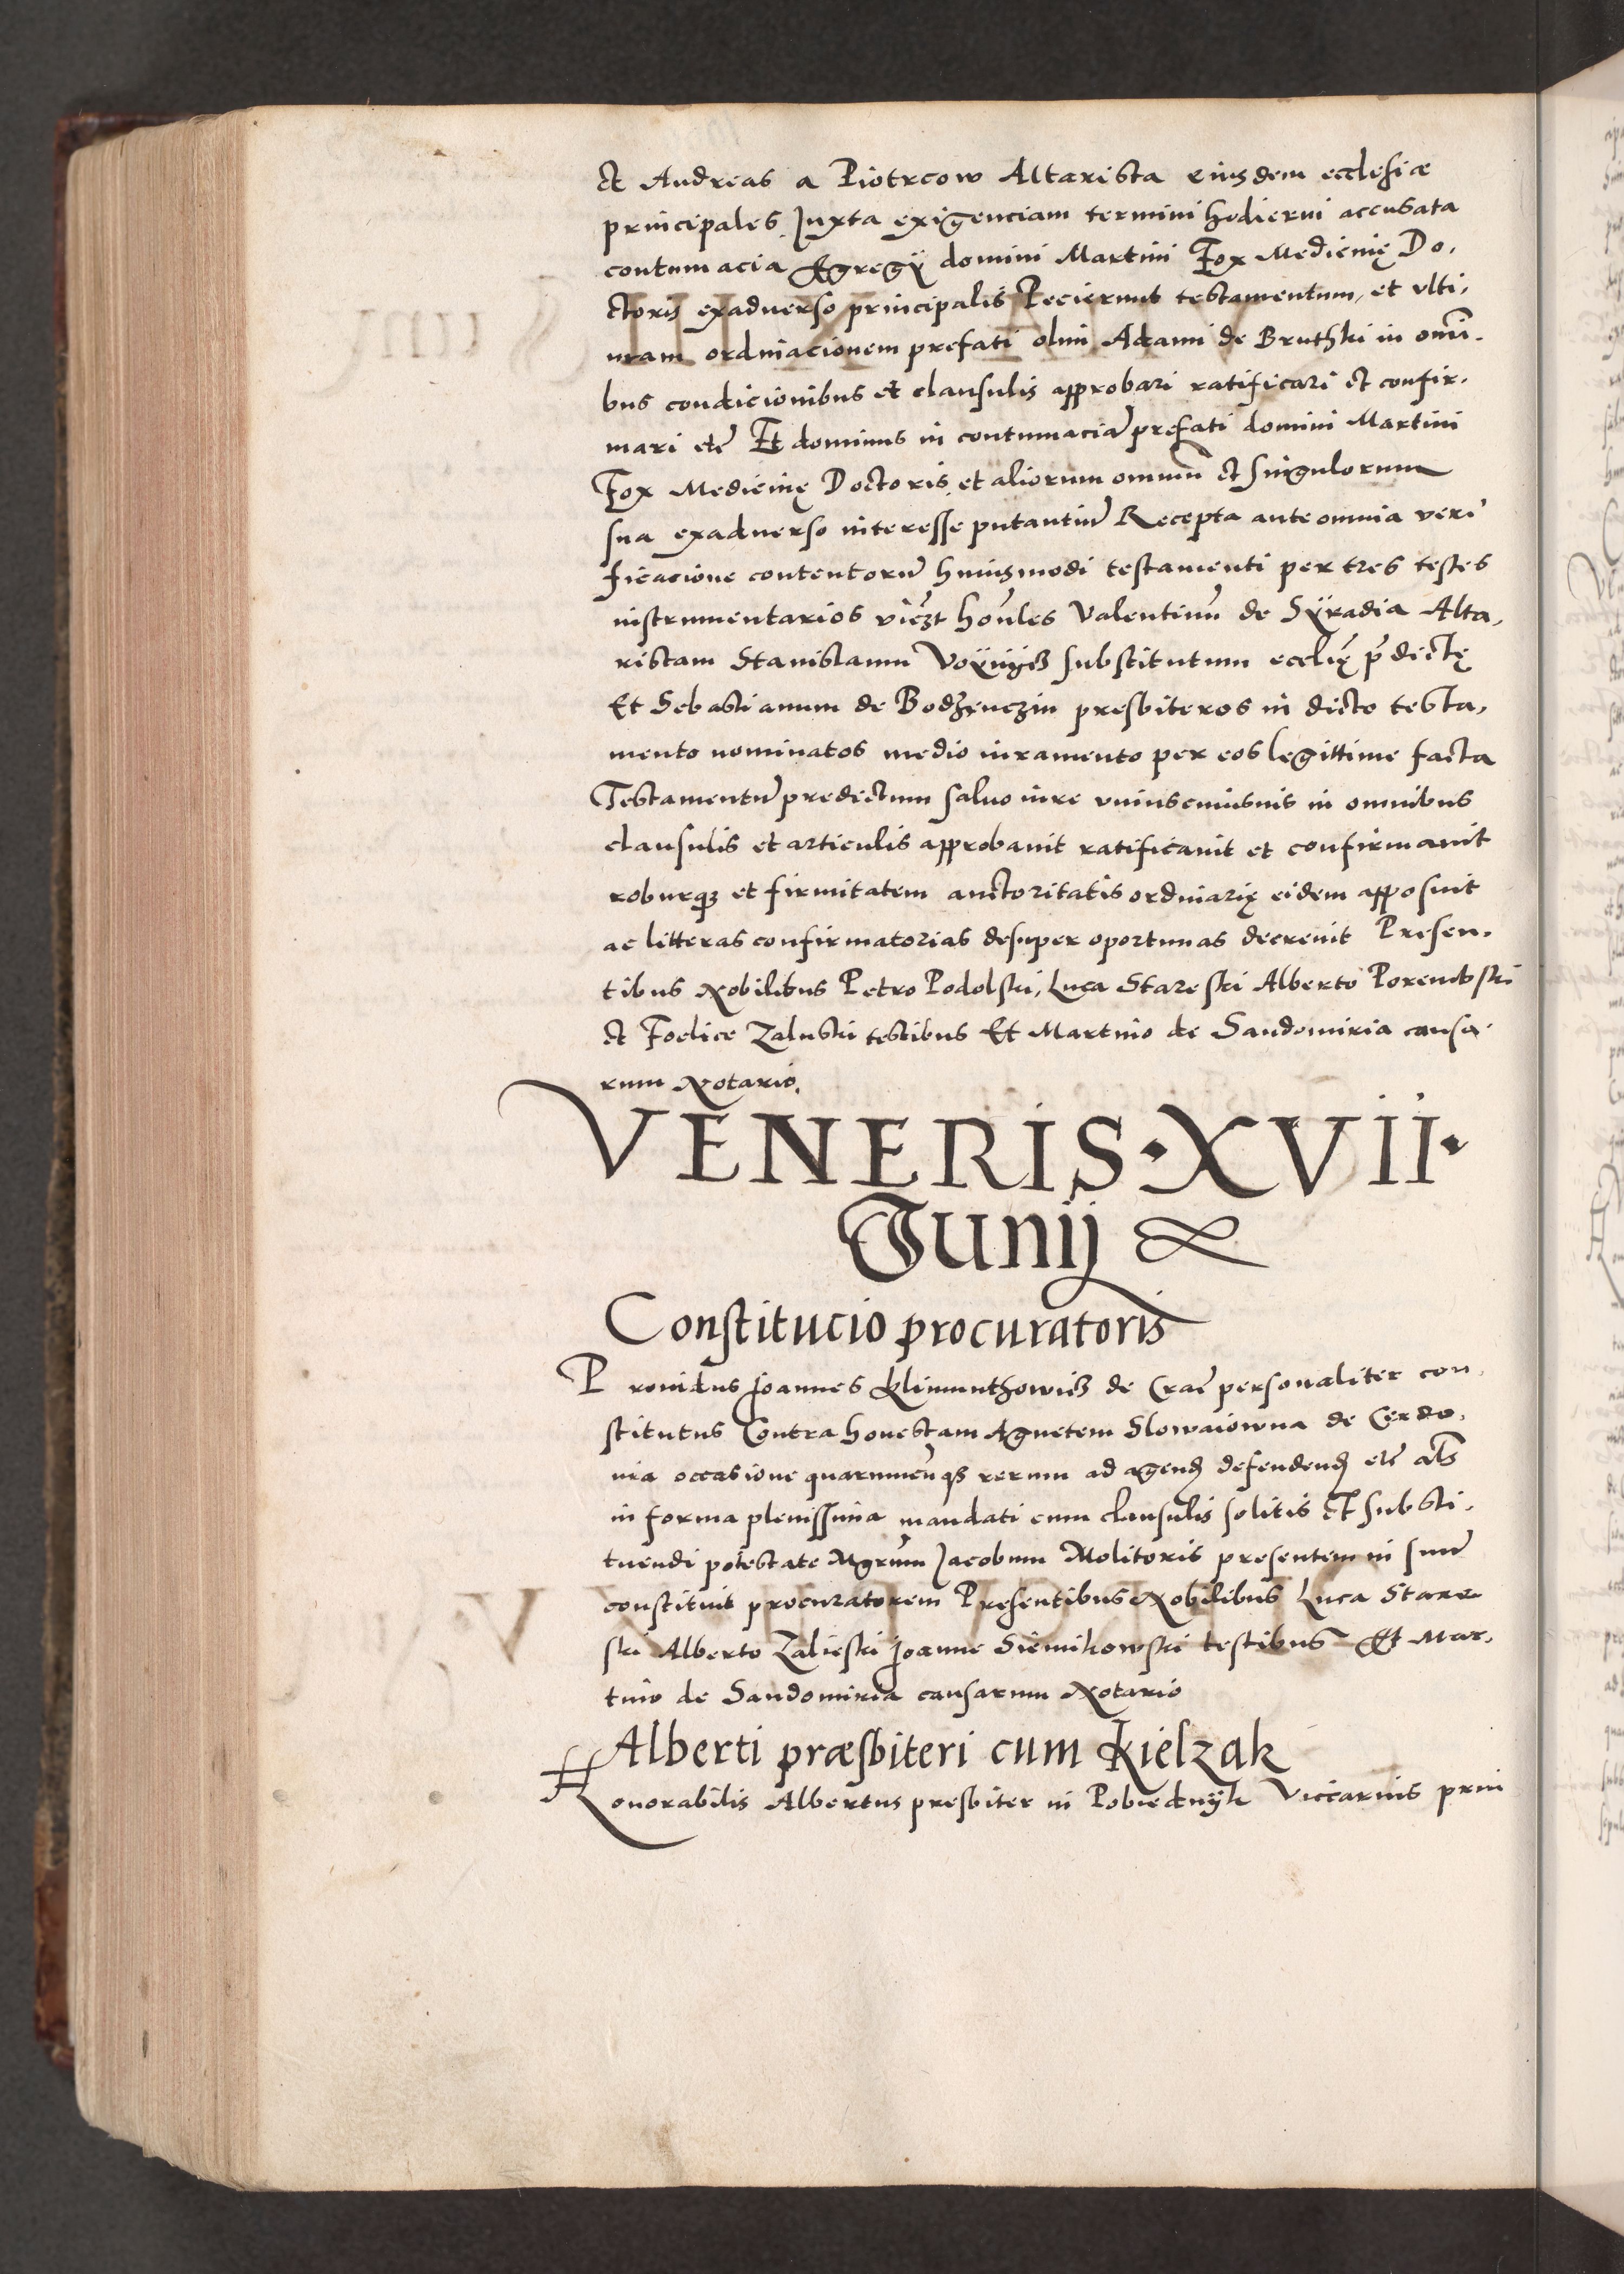 et Andreas a Piotrcow Altarista eiusdem ecclesiæ
principales Juxta exigenciam termini hodierni accusata
contumacia Egregÿ domini Martini Fox Medicinę Do,
ctoris exaduerso principalis Pecierunt testamentum, et vlti,
mam ordinacionem prefati olim Adami de Bruthki in omī,
bus condicionibus et clausulis approbari ratificari et confir,
mari etc̄ Et dominus in contumaciā prefati domini Martini
Fox Medicinę Doctoris et aliorum omniū et singulorum
sua exaduerso interesse putantiū Recepta ante omnia veri
ficacione contentorū huiusmodi testamenti per tres testes
instrumentarios vic̄zt hon̄les Valentinū de Sÿradia Alta,
ristam Stanislaum substitutum ecclīę p̄dictę
Et Sebastianum de Bodzenczin presbiteros in dicto testa,
mento nominatos medio iuramento per eos legittime facta
Testamentū predictum saluo iure vniuscuiusuis in omnibus
clausulis et articulis approbauit ratificauit et confirmauit
roburqꝫ et firmitatem auctoritatis ordinarię eidem apposuit
ac litteras confirmatorias desuper oportunas decreuit Presen,
tibus Nobilibus Petro Podolski, Luca Stareski Alberto Porembski
et Foelice Zaluski testibus Et Martino de Sandomiria causa,
rum Notario.
VENERIS·XVII·
Junij
Constitucio procuratoris
Prouidus Joannes Klimunthowicz de Crac̄ personaliter con,
stitutus Contra honestam Agnetem Slowaiowna de Cerdo,
nia occasione quarumcūqꝫ rerum ad agend defendend etc̄ al̄s
in forma plenissima mandati cum clausulis solitis et substi,
tuendi potestate Mgrum Jacobum Molitoris presentem in suū
constituit procuratorem Presentibus Nobilibus Luca Stare
ski Alberto Zalieski Joanne Siemikowski testibus Et Mar,
tino de Sandomiria causarum Notario
Alberti præsbiteri cum Kielzak
Honorabilis Albertus presbiter in Pobiednÿk Viccarius prin